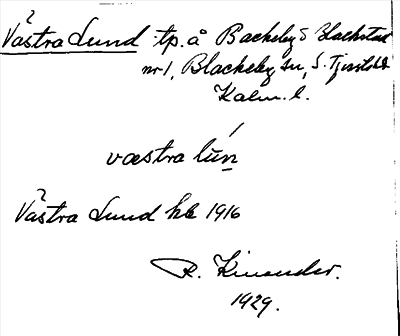 Västra Lund tp. å Backeby o Blackstad
nr 1, Blackeby sn, S. Tjusts hd
Kalm. l.
væstra lún
Västra Lund hk 1916
R. Kinander.
1929.